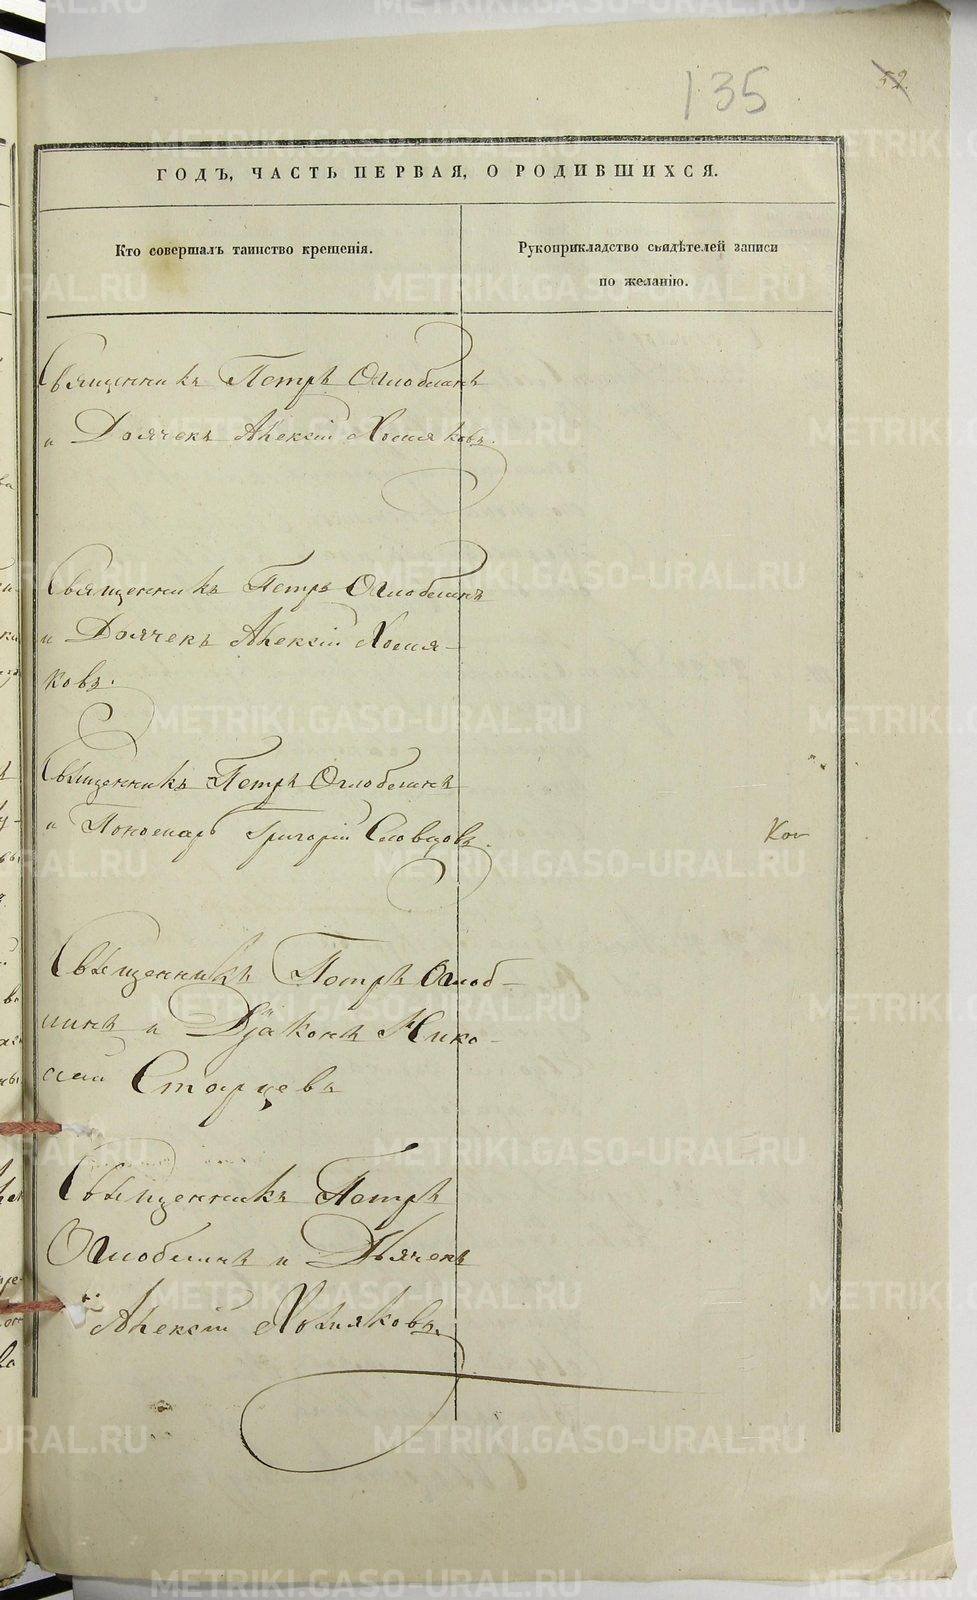 135
52
ГОДЪ, ЧАСТЬ ПЕРВАЯ, О РОДИВШИХСЯ.
Кто совершалъ таинство крещенія.
Рукоприкладство свидѣтелей записи
по желанію.
Священникъ Петръ Оглоблинъ
и Дьячекъ Алексій Хомяковъ.
Священникъ Петръ Оглоблинъ
и Дьячекъ Алексій Хомя-
ковъ.
Священникъ Петръ Оглоблинъ
и Пономарь Григорій Словцовъ.
Священникъ Петръ Оглоб-
линъ и Діаконъ Нико-
лай Старцевъ
Священникъ Петръ
Оглоблинъ и Дьячекъ
Алексій Хомяковъ.
METRIKI.GASO-URAL.RU